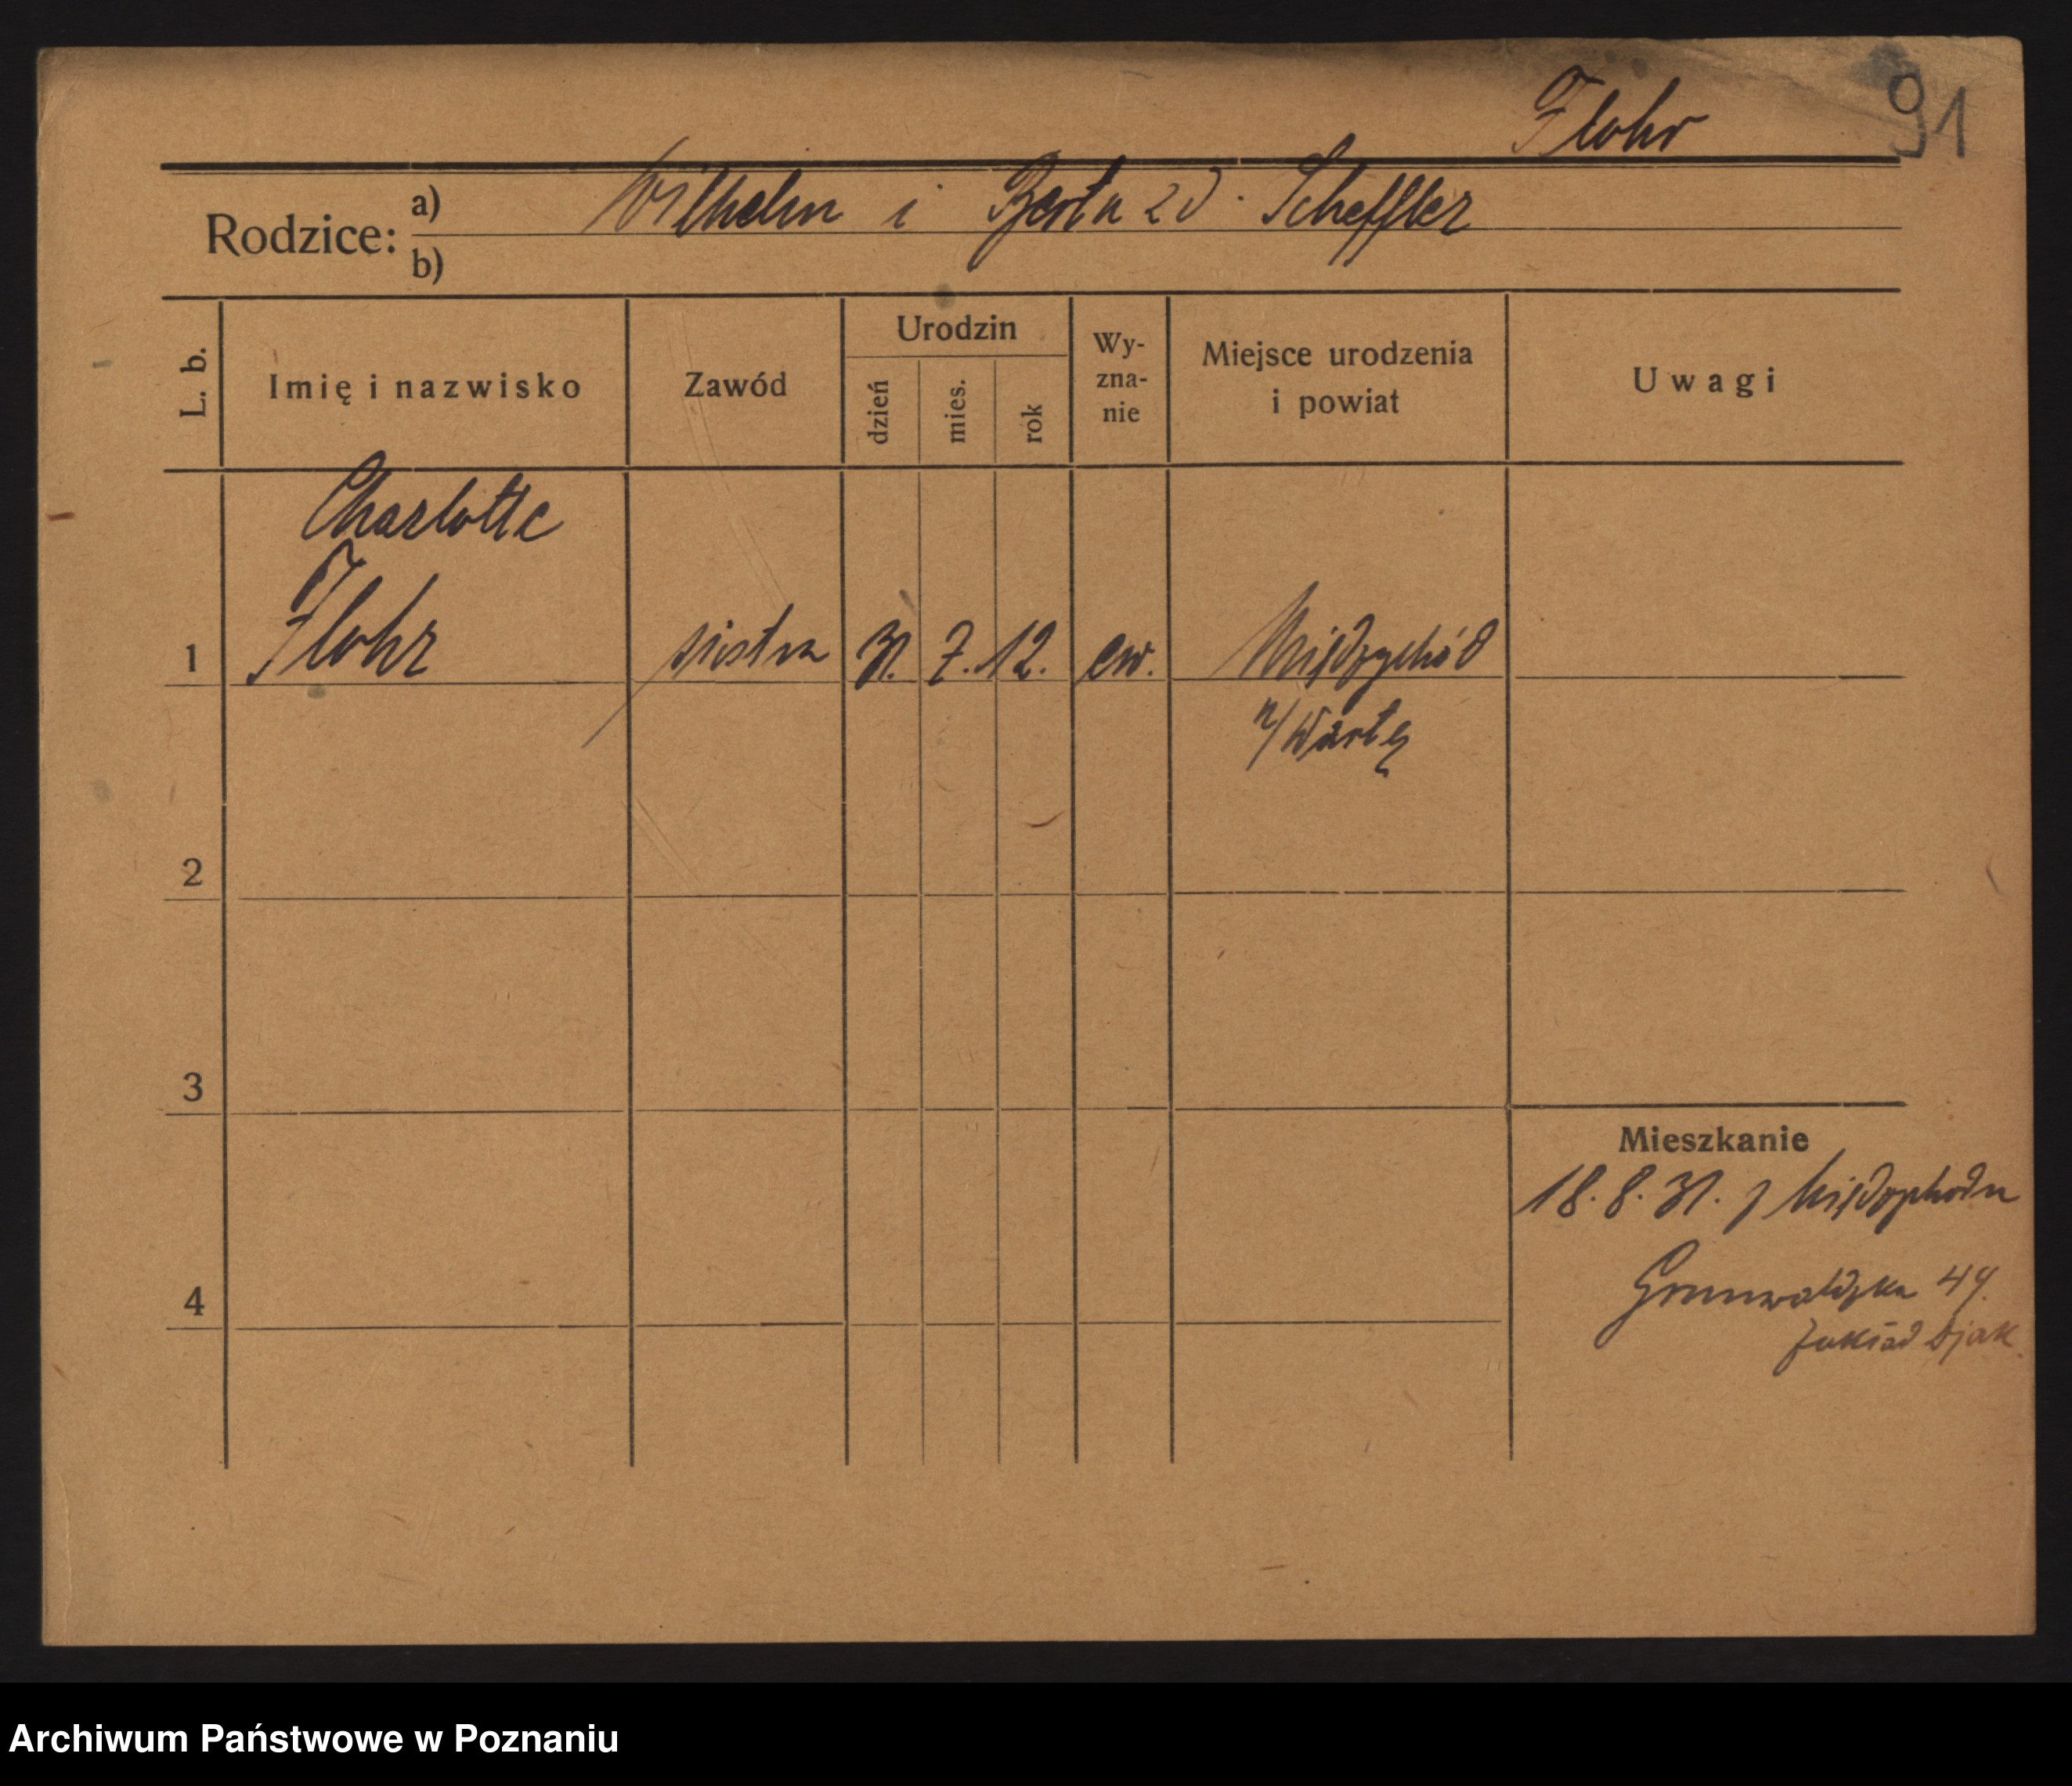 Flohr 91
Rodzice: a) Wilhelm i Berta zd. Scheffler
b)
L. b. Imię i nazwisko Zawód Urodzin dzień mies. rok Wy-zna-nie Miejsce urodzenia i powiat Uwagi
Charlotte
1 Flohr siostra 31. 7. 12. ew. Międzychód
n/Wartą
2
3
Mieszkanie
18. 8. 31. z Międzychodu
4 Grunwaldzka 49.
Zakład Djak.
Archiwum Państwowe w Poznaniu